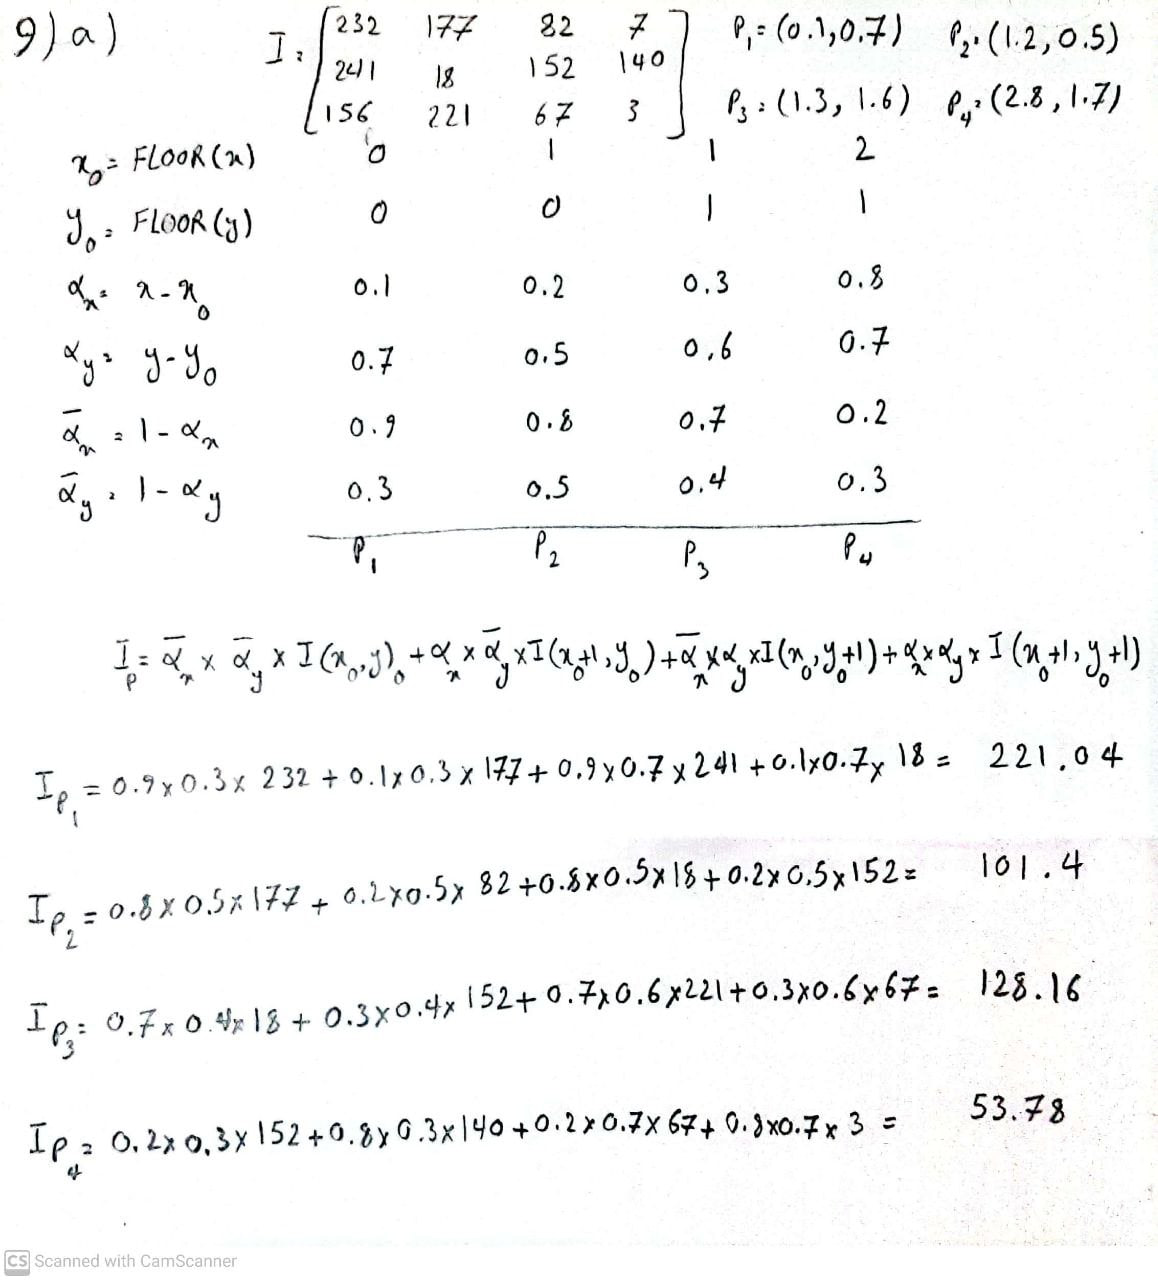 9) a)
I = [232 177 82 7
241 18 152 140
156 221 67 3]
P₁ = (0.1, 0.7) P₂ = (1.2, 0.5)
P₃ = (1.3, 1.6) P₄ = (2.8, 1.7)
x₀ = FLOOR(x) 0 1 1 2
y₀ = FLOOR(y) 0 0 1 1
αₓ = x - x₀ 0.1 0.2 0.3 0.8
α_y = y - y₀ 0.7 0.5 0.6 0.7
ᾱₓ = 1 - αₓ 0.9 0.8 0.7 0.2
ᾱ_y = 1 - α_y 0.3 0.5 0.4 0.3
P₁ P₂ P₃ P₄
I_P = ᾱₓ × ᾱ_y × I(x₀, y)₀ + αₓ × ᾱ_y × I(x₀+1, y₀) + ᾱₓ × α_y × I(x₀, y₀+1) + αₓ × α_y × I(x₀+1, y₀+1)
I_P₁ = 0.9 × 0.3 × 232 + 0.1 × 0.3 × 177 + 0.9 × 0.7 × 241 + 0.1 × 0.7 × 18 = 221.04
I_P₂ = 0.8 × 0.5 × 177 + 0.2 × 0.5 × 82 + 0.8 × 0.5 × 18 + 0.2 × 0.5 × 152 = 101.4
I_P₃ = 0.7 × 0.4 × 18 + 0.3 × 0.4 × 152 + 0.7 × 0.6 × 221 + 0.3 × 0.6 × 67 = 128.16
I_P₄ = 0.2 × 0.3 × 152 + 0.8 × 0.3 × 140 + 0.2 × 0.7 × 67 + 0.8 × 0.7 × 3 = 53.78
CS Scanned with CamScanner